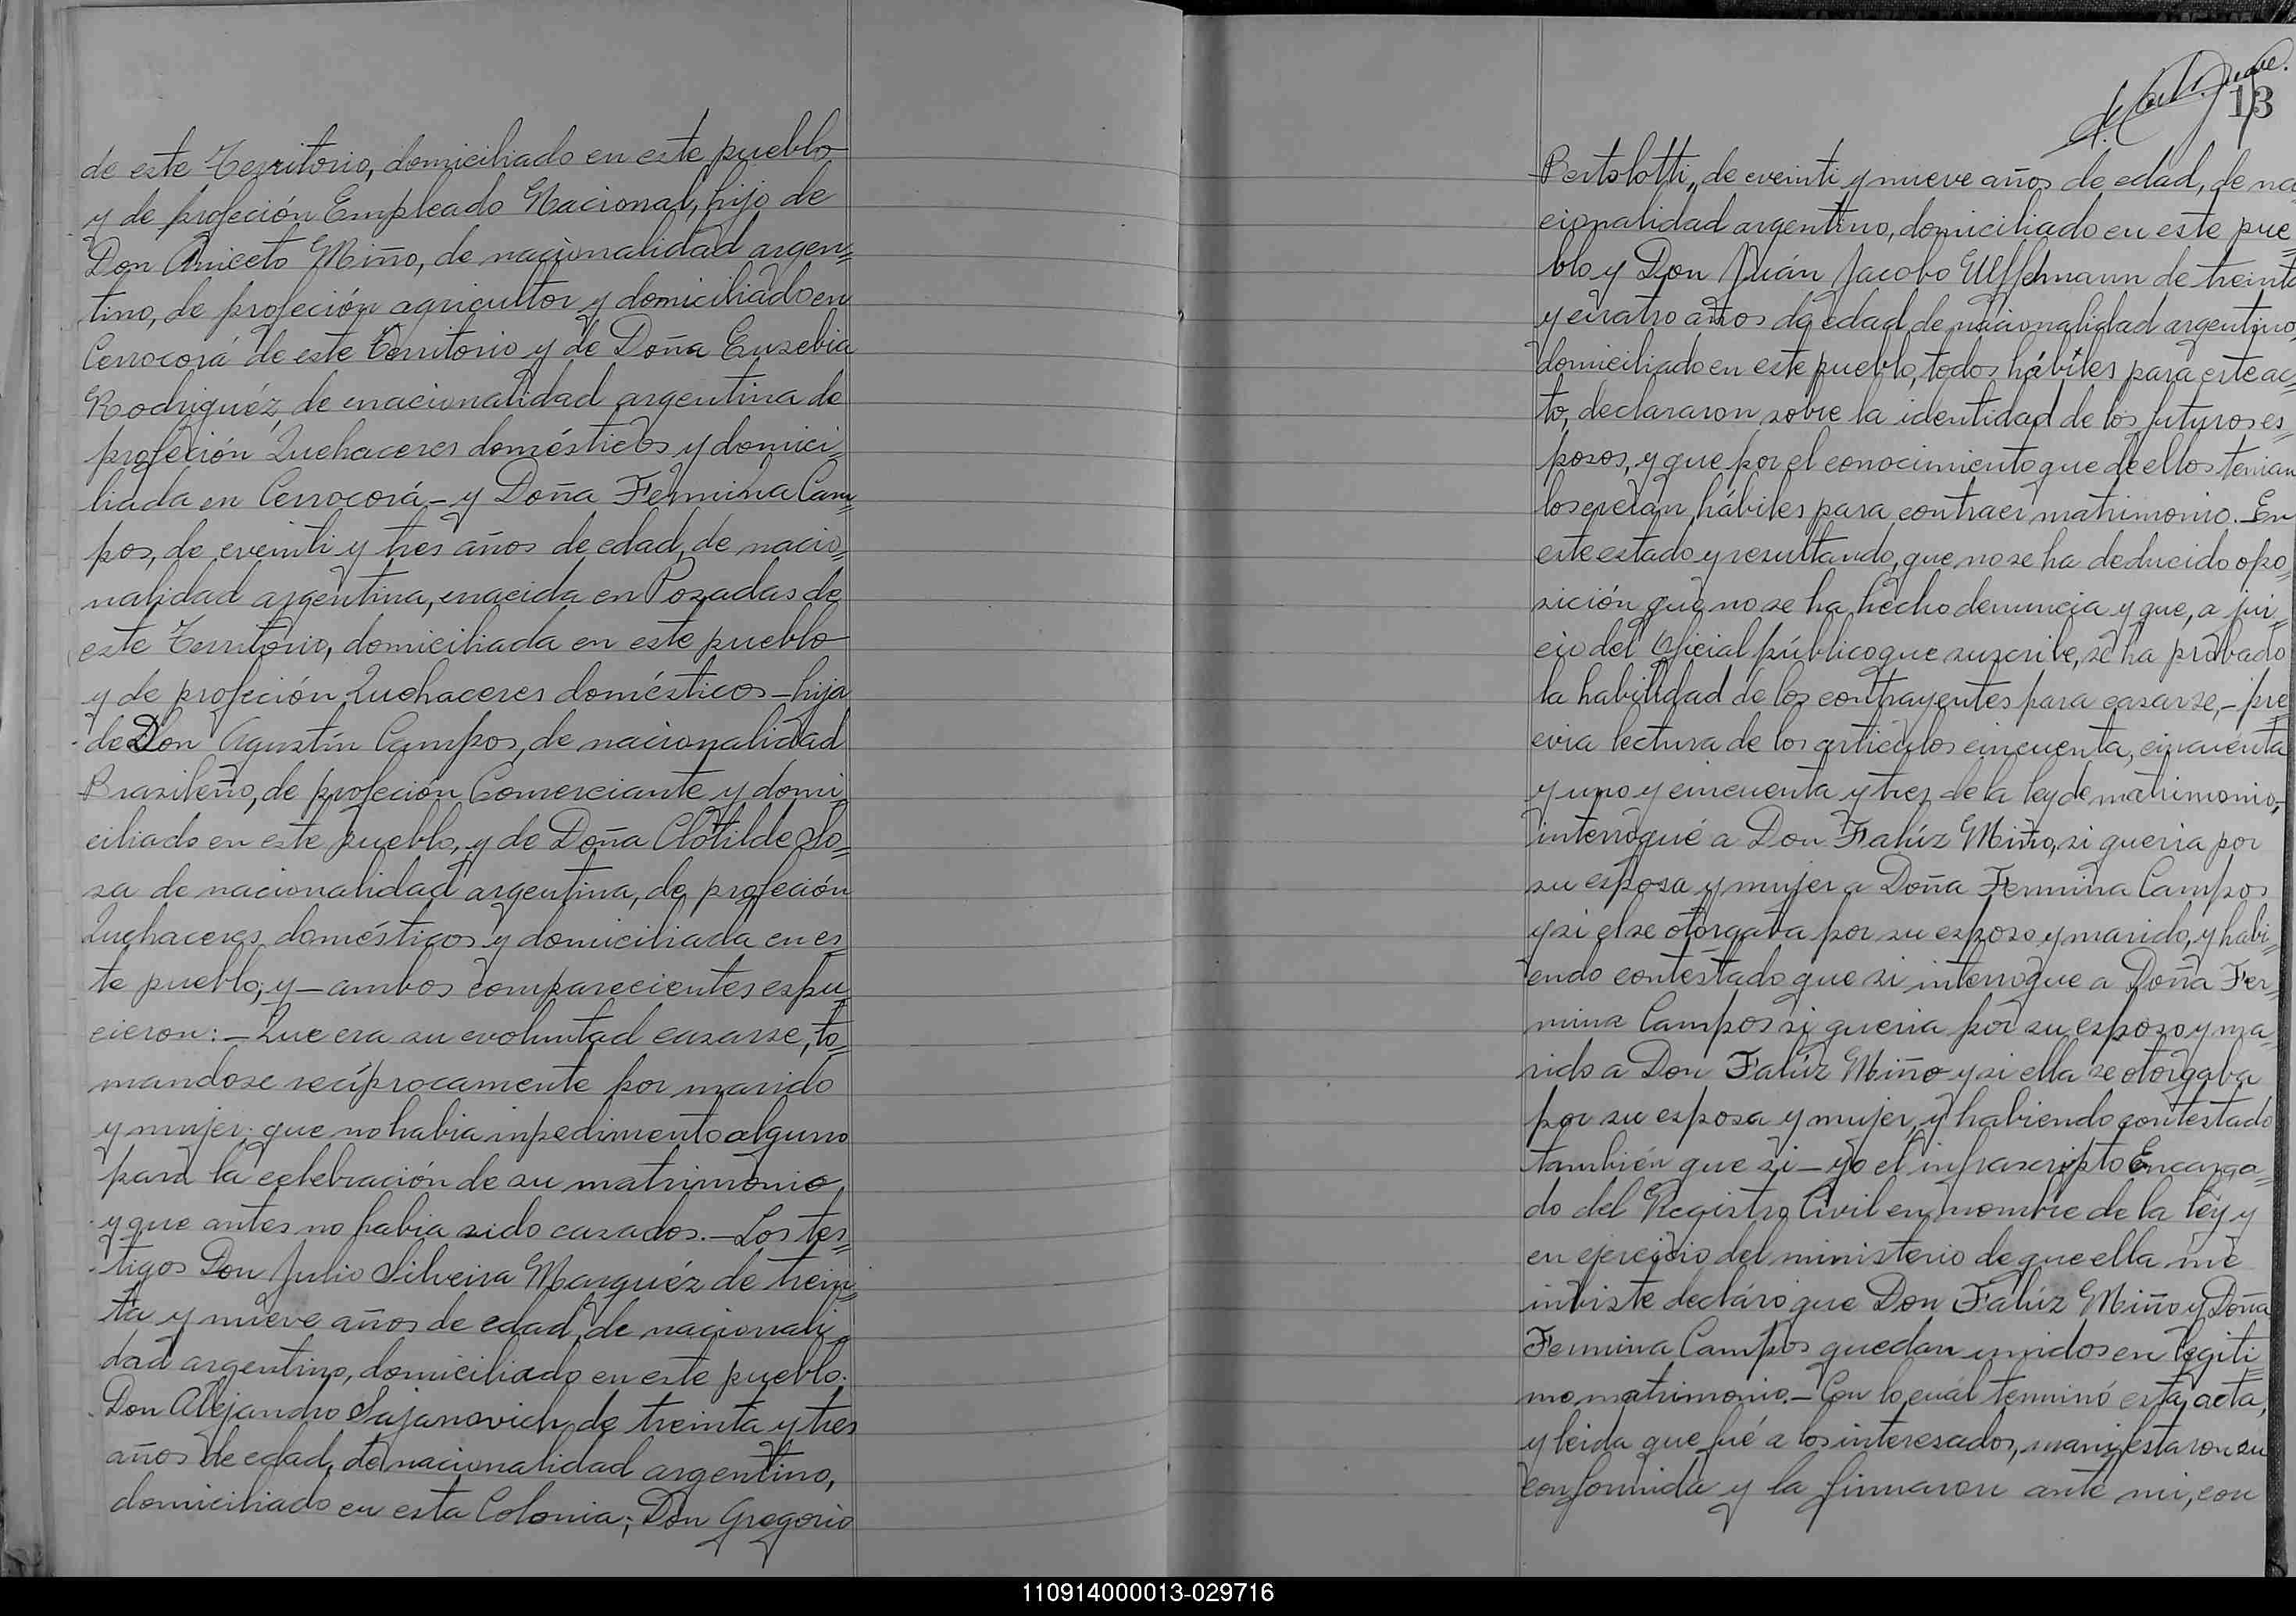 de este Territorio, domiciliado en este pueblo
y de profeción Empleado Nacional, hijo de
Don Aniceto Miño, de nacionalidad argen=
tino, de profeción agricultor y domiciliado en
Cerrocorá de este Territorio y de Doña Eusebia
Rodriguéz, de nacionalidad argentina de
profeción Quehaceres domésticos y domici=
liada en Cerrocorá - y Doña Fermina Cam=
pos, de veinti y tres años de edad, de nacio=
nalidad argentina, nacida en Posadas de
este Territorio, domiciliada en este pueblo
y de profeción Quehaceres domésticos - hija
de Don Agustín Campos, de nacionalidad
Brasileño, de profeción Comerciante y domi=
ciliado en este pueblo, y de Doña Clotilde So=
sa de nacionalidad argentina, de profeción
Quehaceres domésticos y domiciliada en es=
te pueblo; y - ambos comparecientes espu=
cieron: - Que era su voluntad casarse, to=
mandose recíprocamente por marido
y mujer; que no habia inpedimento alguno
para la celebración de su matrimonio,
y que antes no habia sido casados. - Los tes=
tigos Don Julio Silveira Marquéz de trein=
ta y nueve años de edad, de nacionali=
dad argentino, domiciliado en este pueblo;
Don Alejandro Sajanovich, de treinta y tres
años de edad, de nacionalidad argentino,
domiciliado en esta Colonia; Don Gregorio
13
Bertolotti, de veinti y nueve años de edad, de na
cionalidad argentino, domiciliado en este pue=
blo y Don Juán Jacobo de treinta
y cuatro años de edad de nacionalidad argentino,
domiciliado en este pueblo, todos hábiles para este ac=
to, declararon sobre la identidad de los futuros es=
posos, y que por el conocimiento que de ellos tenian
los creian hábiles para contraer matrimonio. - En
este estado y resultando, que no se ha deducido opo=
sición que no se ha hecho denuncia y que, a jui=
cio del Oficial público que suscribe, se ha probado
la habilidad de los contrayentes para casarse, - pre=
via lectura de los articulos cincuenta, cincuenta
y uno y cincuenta y tres de la ley de matrimonio,
interrogué a Don Falúz Miño, si queria por
su esposa y mujer a Doña Fermina Campos
y si el se otorgaba por su esposo y marido, y habi=
endo contestado que si interrogue a Doña Fer=
mina Campos si queria por su esposo y ma=
rido a Don Falúz Miño y si ella se otorgaba
por su esposa y mujer, y habiendo contestado
también que si - yo el infrascripto Encarga=
do del Registro Civil en nombre de la ley y
en ejercicio del ministerio de que ella me
inviste decláro que Don Falúz Miño y Doña
Fermina Campos quedan unidos en legiti=
mo matrimonio. - Con lo cuál terminó esta acta,
y leida que fué a los interesados, manifestaron su
conformida y la firmaron ante mi, con
110914000013-029716